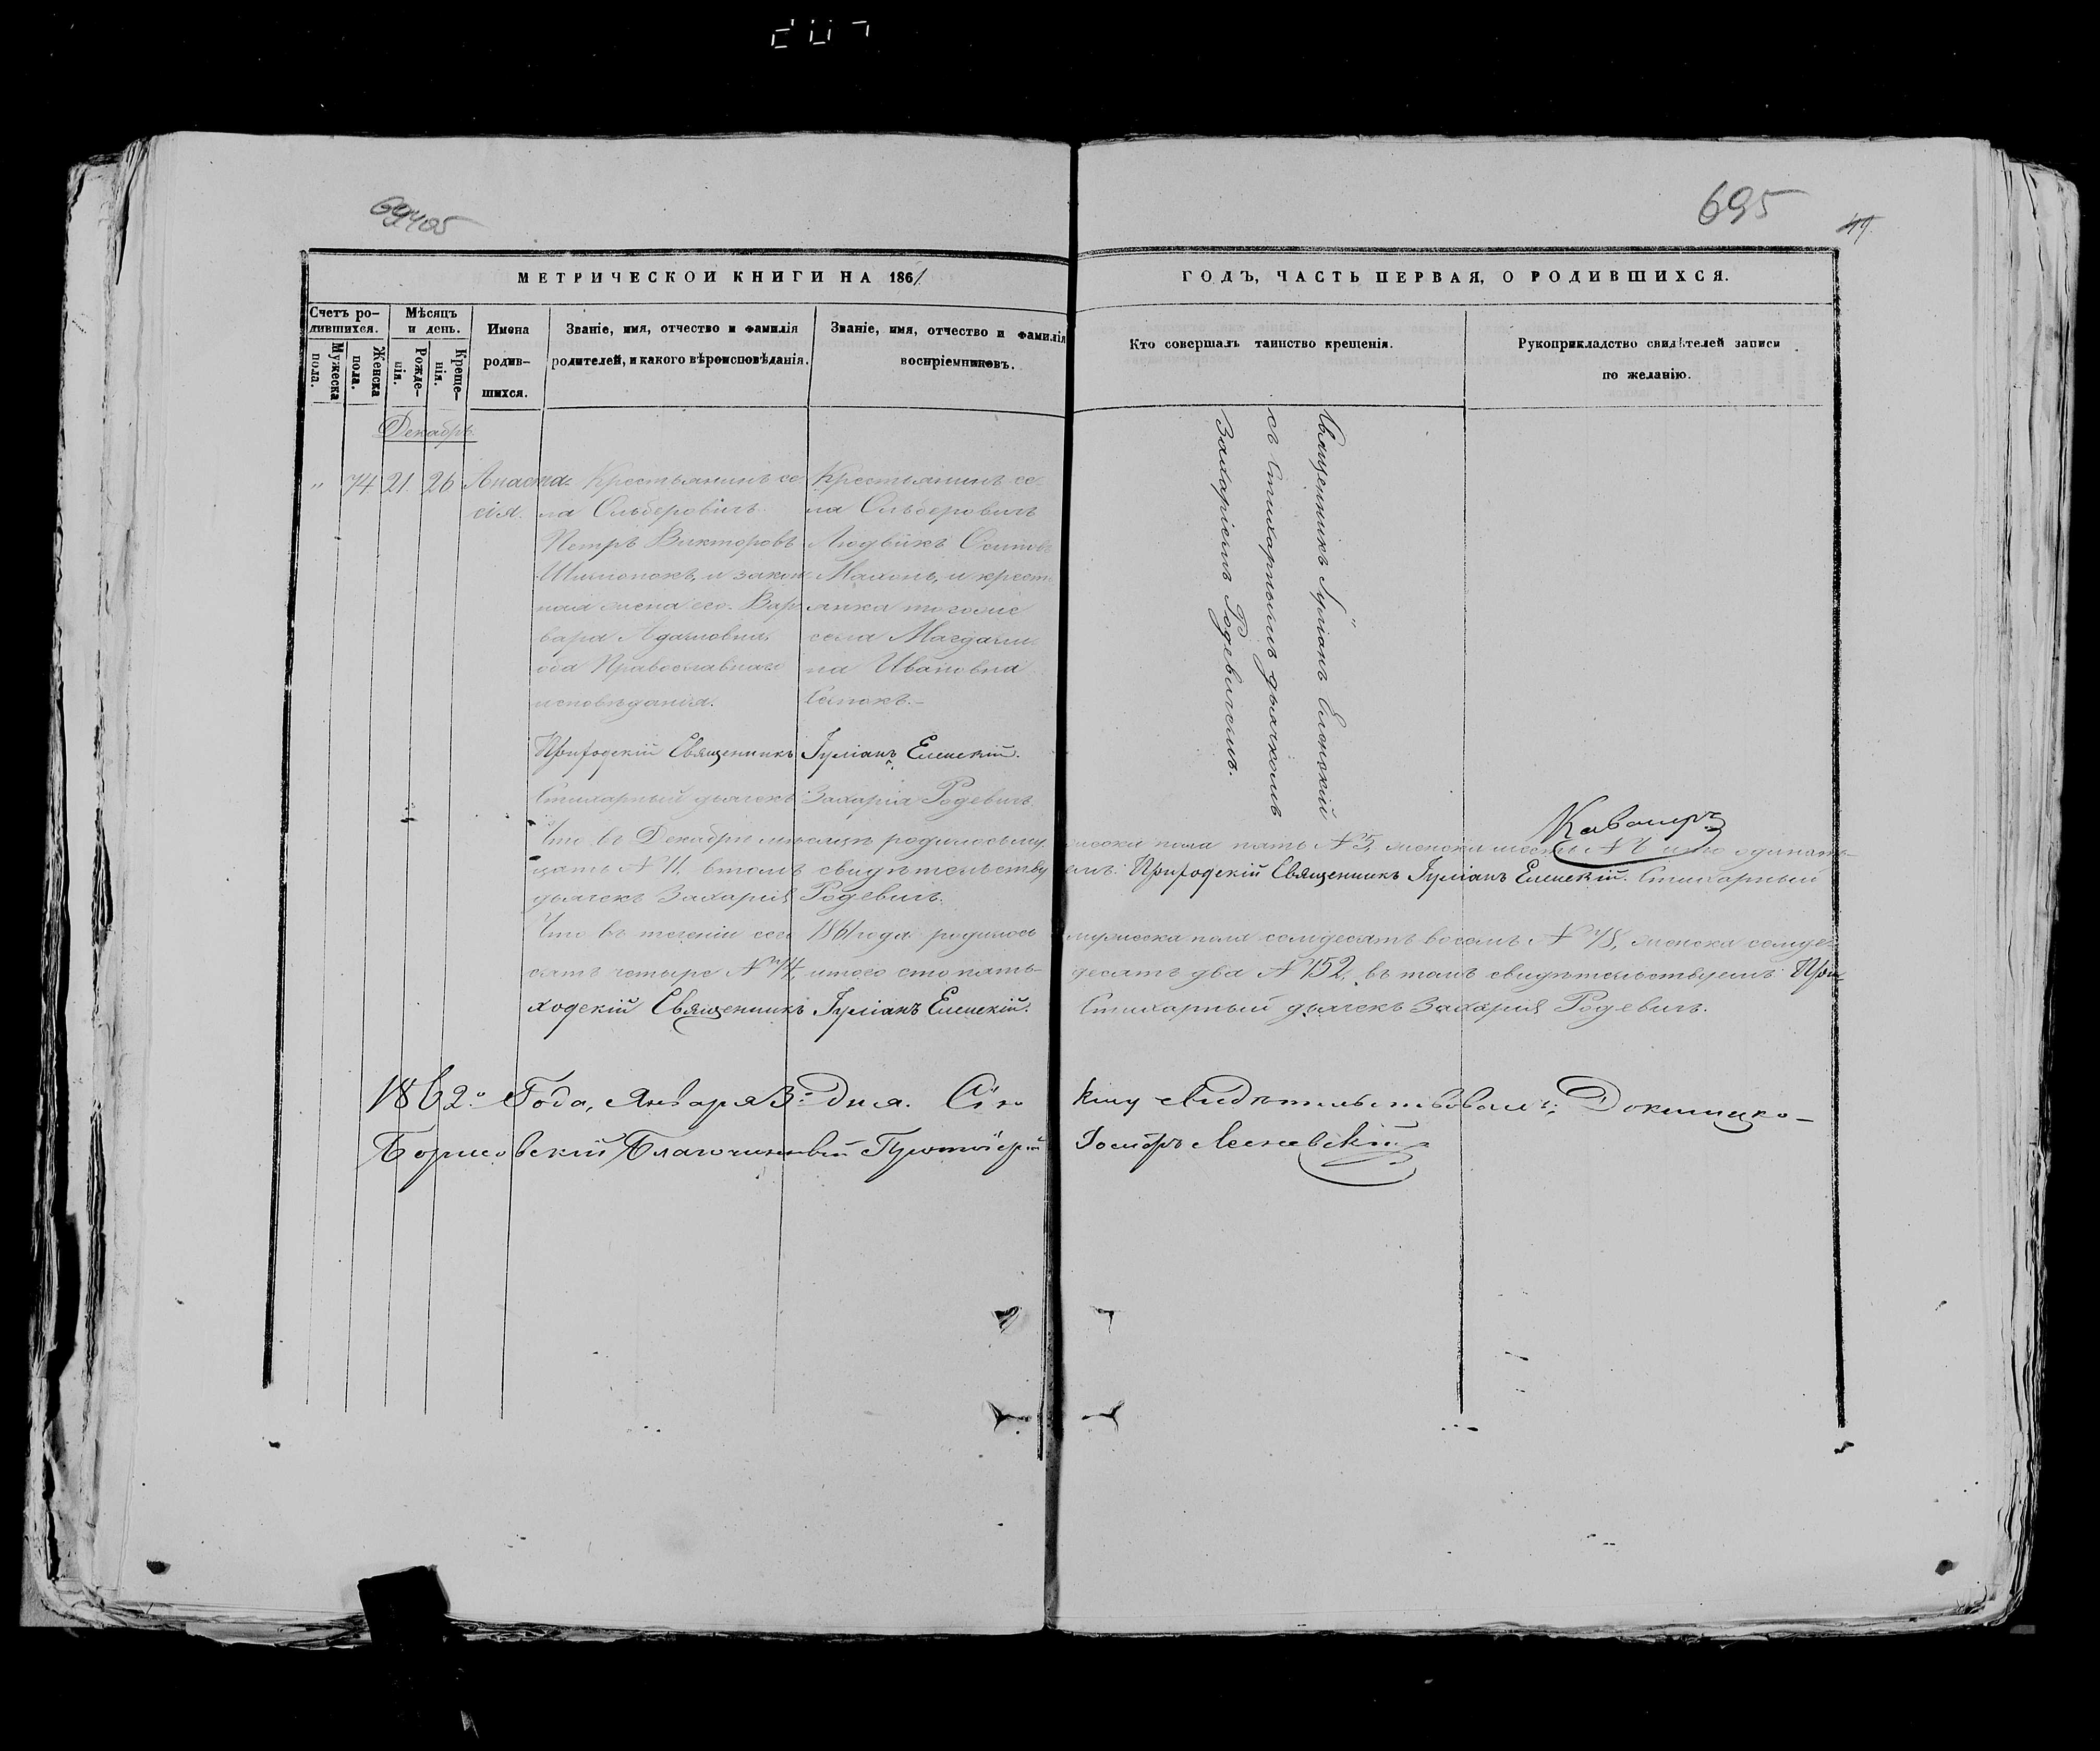 695
МЕТРИЧЕСКОЙ КНИГИ НА 1861 ГОДЪ, ЧАСТЬ ПЕРВАЯ, О РОДИВШИХСЯ.
Счетъ ро-
дившихся.
Мужеска
пола.
Женска
пола.
Мѣсяцъ
и день.
Рожде-
нія.
Креще-
нія.
Имена
родив-
шихся.
Званіе, имя, отчество и фамилія
родителей, и какого вѣроисповѣданія.
Званіе, имя, отчество и фамилія
воспріемниковъ.
Кто совершалъ таинство крещенія.
Рукоприкладство свидѣтелей записи
по желанію.
Декабрь
" 74 21. 26
Анаста-
сія.
Крестьянинъ се-
ла Ольберовичъ
Петръ Викторовъ
и закон-
ная жена его Вар-
вара Адамовна,
оба Православнаго
исповѣданія.
Крестьянинъ се-
ла Ольберовичъ
Людвикъ Осиповъ
Махонь, и крест-
янка тогоже
села Магдали-
на Ивановна
Священникъ Іуліанъ Еленскій
съ Стихарнымъ дьячкомъ
Захаріемъ Родевичемъ.
Приходскій Священникъ Іуліанъ Еленскій.
Стихарный дьячекъ Захарія Родевичъ.
Что въ Декабрѣ мѣсяцѣ родилось му- жеска пола пять №5, женска шесть № 6 итого одинат-
цать №11, втомъ свидѣтельству емъ: Приходскій Священникъ Іуліанъ Еленскій. Стихарный
дьячекъ Захарія Родевичъ.
Что въ теченіи сего 1861 года родилось мужеска пола семдесятъ восемь № 78, женска семде-
сятъ четыре № 74, итого сто пять- десятъ два №152, въ томъ свидѣтельствуемъ: При-
ходскій Священникъ Іуліанъ Еленскій. Стихарный дьячекъ Захарія Родевичъ.
1862го Года, Января 3го Дня. Сію книгу свидѣтельствовалъ: Докшицко-
Борисовскій Благочинный Протоіерей
Кавалеръ